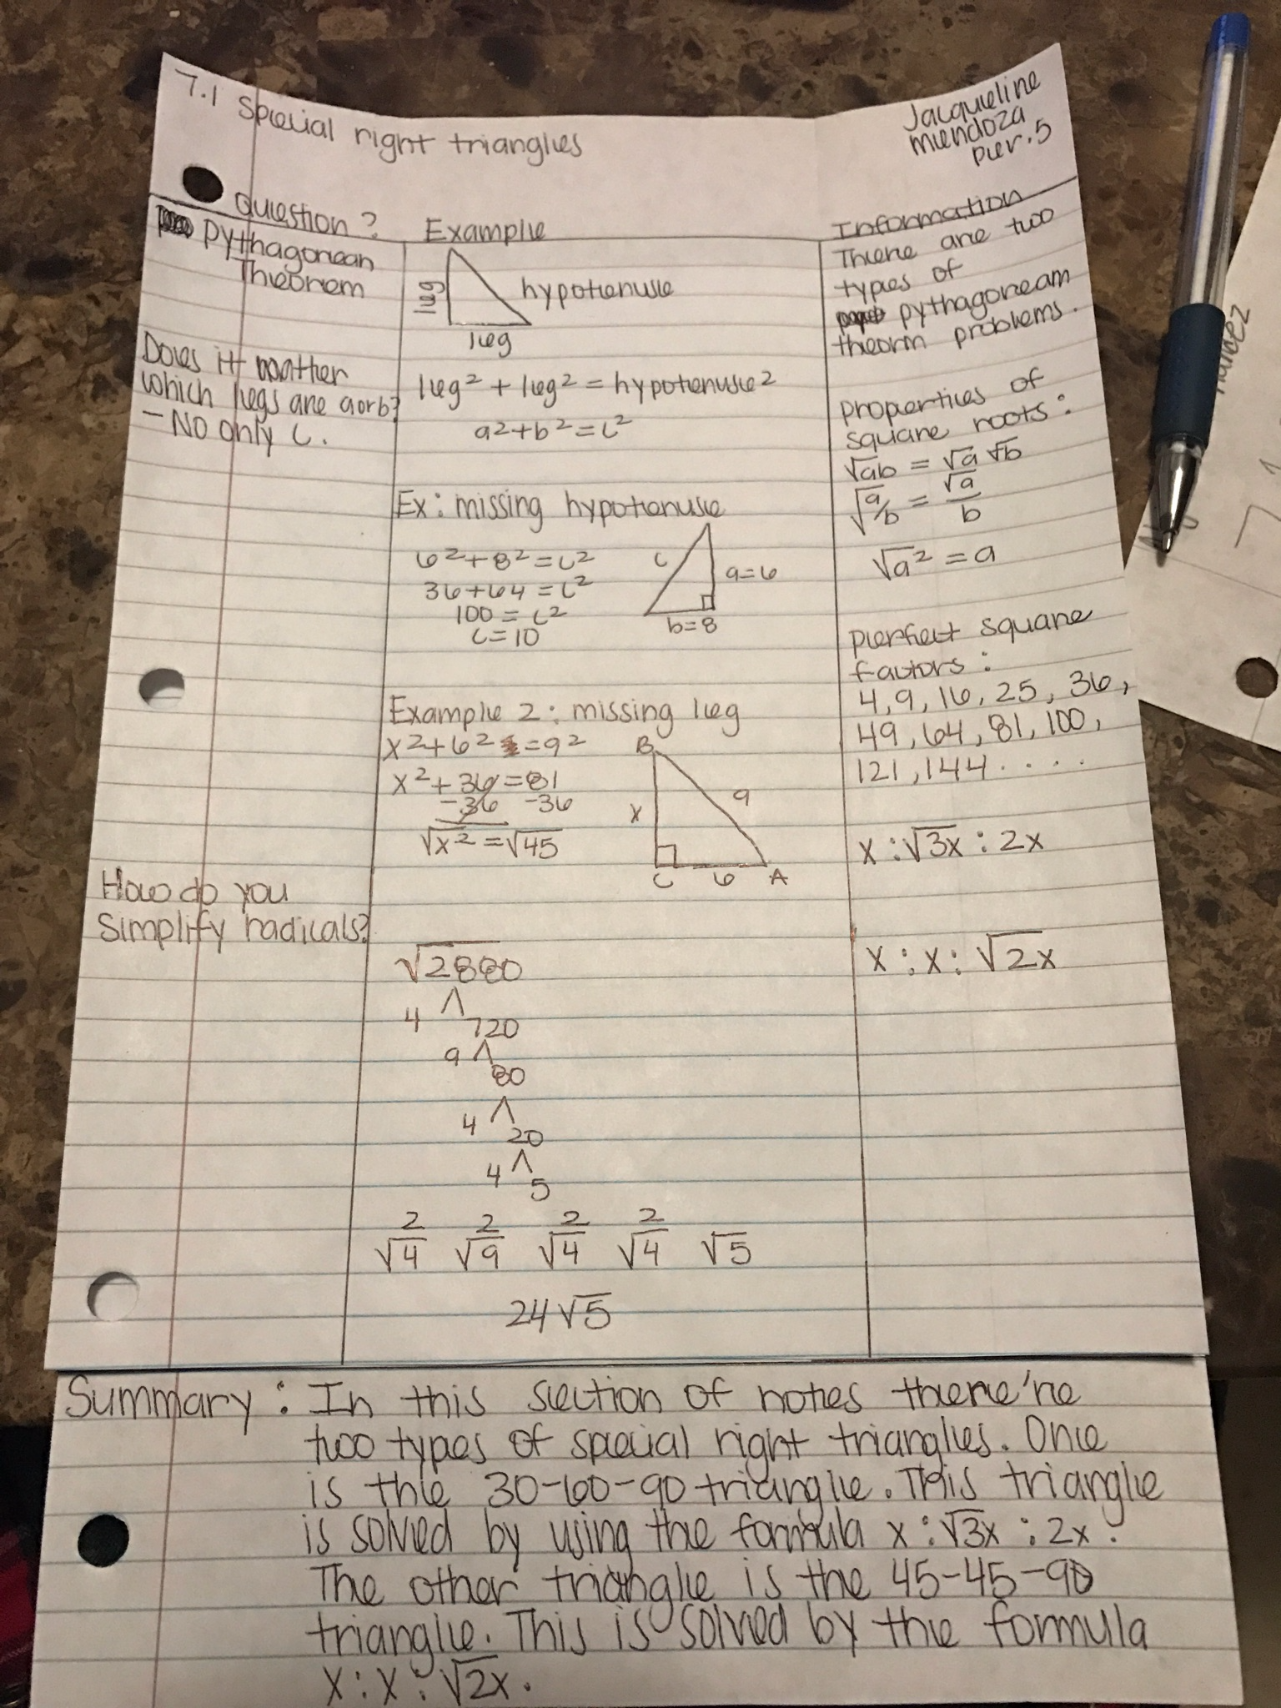 7.1 Special right triangles
Jacqueline
Mendoza
per.5
Question?
Pythagorean
Theorem
Does it matter
which legs are a or b?
- No only c.
How do you
simplify radicals?
Example
leg
hypotenuse
leg
leg² + leg² = hypotenuse²
a²+b²=c²
Ex: missing hypotenuse
6²+8²=c²
36+64=c²
100=c²
c=10
c
a=6
b=8
Example 2: missing leg
x²+6²=9²
x²+36=81
-36 -36
√x²=√45
B
x
9
C 6 A
√2880
4 720
9 80
4 20
4 5
2 2 2 2
√4 √9 √4 √4 √5
24√5
Information
There are two
types of
pythagoream
theorm problems.
properties of
square roots:
√ab = √a √b
√a/b = √a
b
√a² = a
perfect square
factors:
4, 9, 16, 25, 36,
49, 64, 81, 100,
121, 144 . . . .
x : √3x : 2x
x : x : √2x
Summary: In this section of notes there're
two types of special right triangles. One
is the 30-60-90 triangle. This triangle
is solved by using the formula x : √3x : 2x.
The other triangle is the 45-45-90
triangle. This is solved by the formula
x : x : √2x.